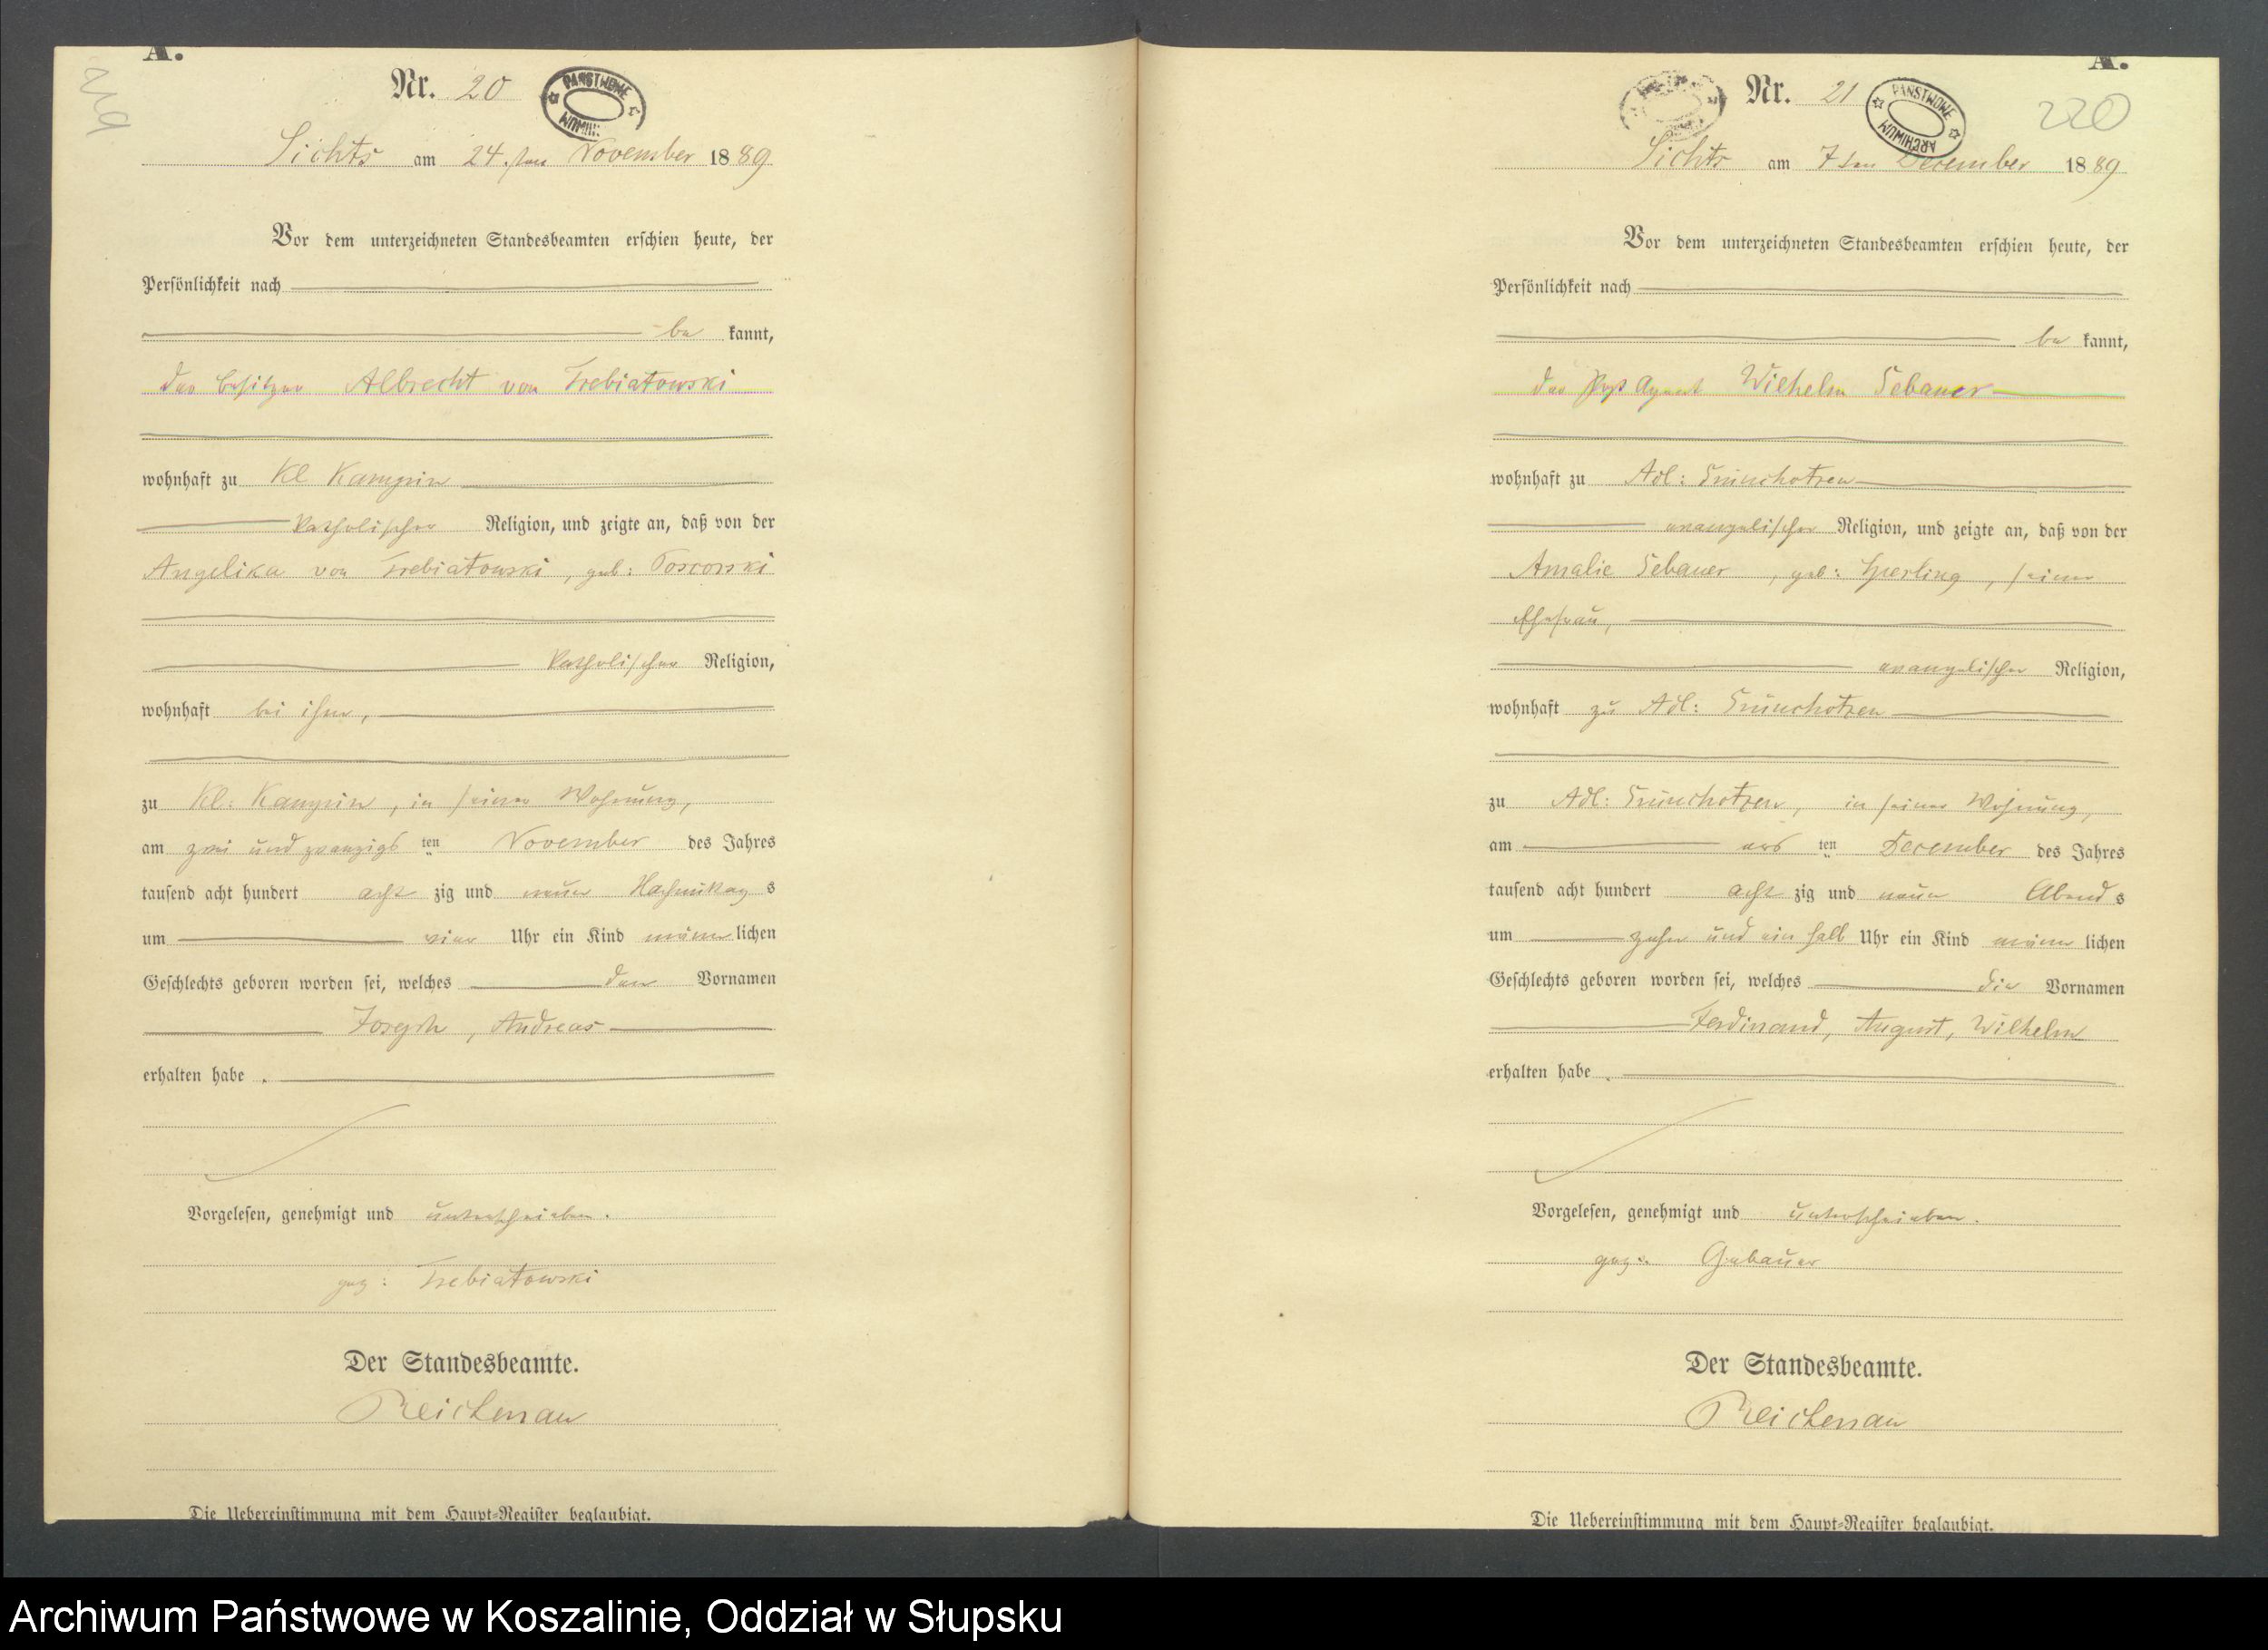 A.
219
Nr. 20
PAŃSTWOWE ARCHIWUM
Sichts am 24. ten November 1889
Vor dem unterzeichneten Standesbeamten erschien heute, der
Persönlichkeit nach
be kannt,
der Besitzer Albrecht von Trebiatowski
wohnhaft zu Kl Kampin
katholischer Religion, und zeigte an, daß von der
Angelika von Trebiatowski, geb:
katholischer Religion,
wohnhaft bei ihm,
zu Kl: Kampin, in seiner Wohnung,
am zwei und zwanzigs ten November des Jahres
tausend acht hundert acht zig und neun Nachmittag s
um vier Uhr ein Kind männ lichen
Geschlechts geboren worden sei, welches den Vornamen
Joseph, Andreas
erhalten habe.
Vorgelesen, genehmigt und unterschrieben.
gez: Trebiatowski
Der Standesbeamte.
Reichenau
Die Uebereinstimmung mit dem Haupt-Register beglaubigt.
A.
220
Nr. 21
PAŃSTWOWE ARCHIWUM
Sichts am 7 ten December 1889
Vor dem unterzeichneten Standesbeamten erschien heute, der
Persönlichkeit nach
be kannt,
der Post Agent Wilhelm Gebauer
wohnhaft zu Adl: Grünchotzen
evangelischer Religion, und zeigte an, daß von der
Amalie Gebauer, geb: Sperling, seiner
Ehefrau,
evangelischer Religion,
wohnhaft zu Adl: Grünchotzen
zu Adl: Grünchotzen, in seiner Wohnung,
am ers ten December des Jahres
tausend acht hundert acht zig und neun Abend s
um zehn und ein halb Uhr ein Kind männ lichen
Geschlechts geboren worden sei, welches die Vornamen
Ferdinand, August, Wilhelm
erhalten habe.
Vorgelesen, genehmigt und unterschrieben.
gez: Gebauer
Der Standesbeamte.
Reichenau
Die Uebereinstimmung mit dem Haupt-Register beglaubigt.
Archiwum Państwowe w Koszalinie, Oddział w Słupsku